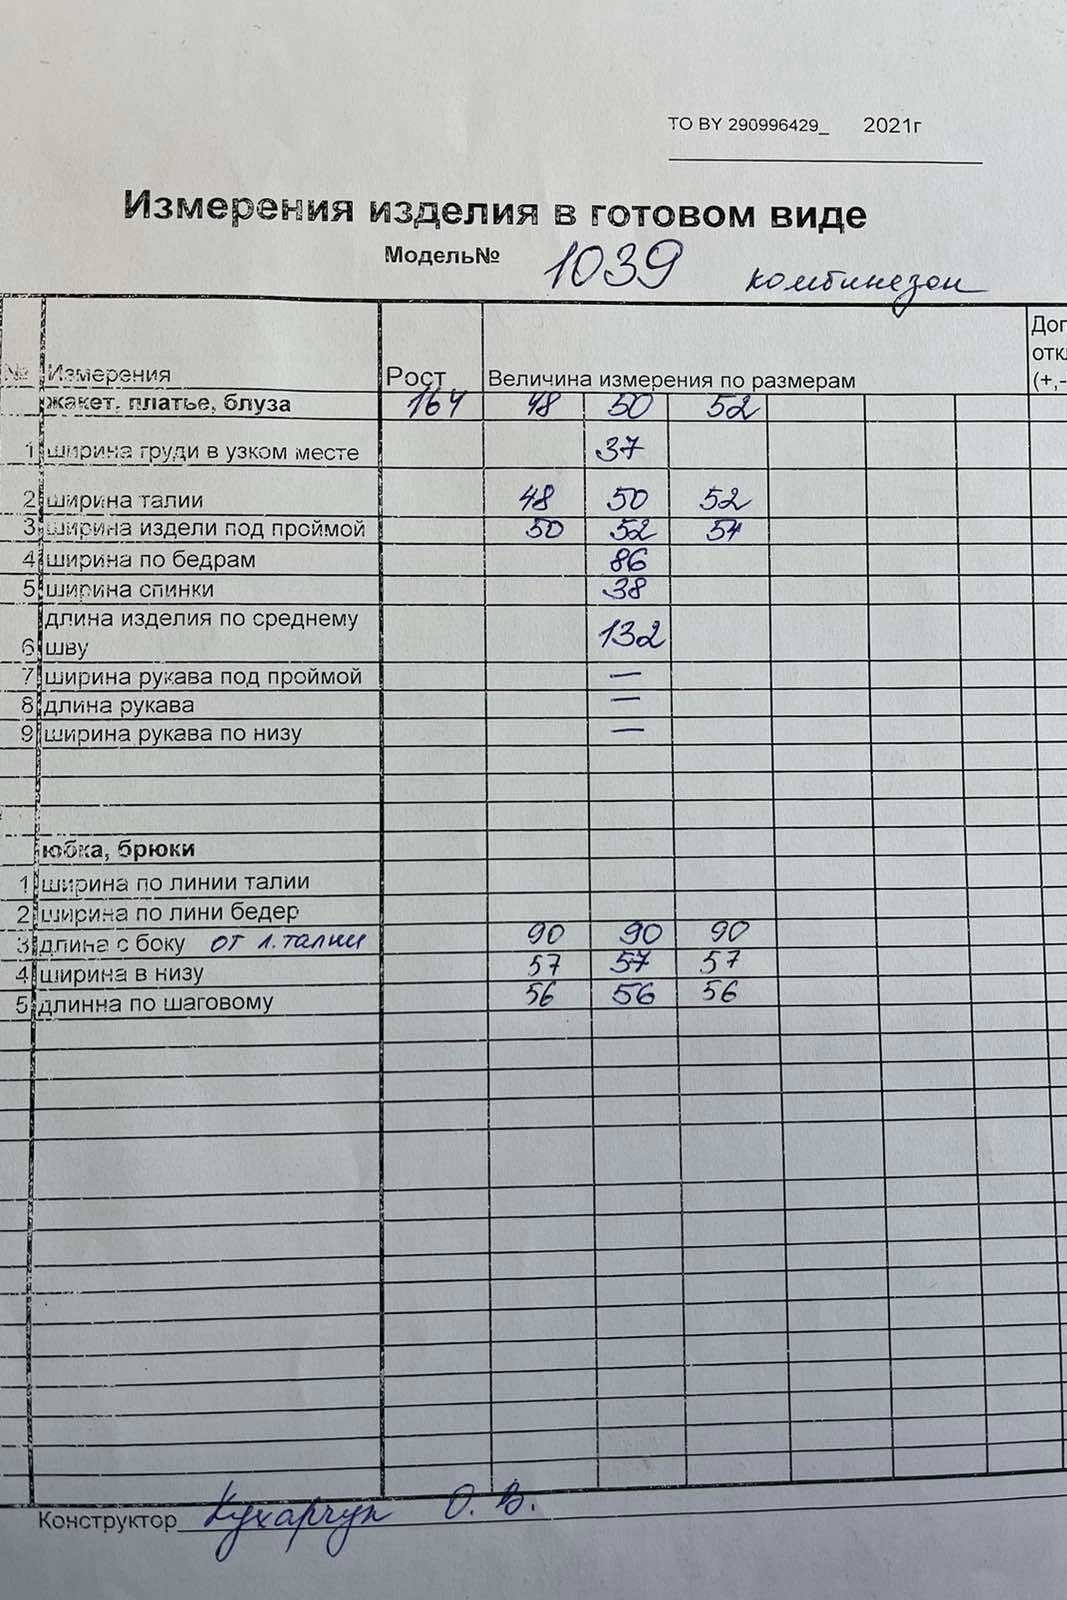 ТО BY 290996429_ 2021г
Измерения изделия в готовом виде
Модель№ 1039 комбинезон
№ Измерения Рост Величина измерения по размерам Доп откл (+,-
жакет, платье, блуза 164 48 50 52
1 ширина груди в узком месте 37
2 ширина талии 48 50 52
3 ширина издели под проймой 50 52 54
4 ширина по бедрам 86
5 ширина спинки 38
длина изделия по среднему
6 шву 132
7 ширина рукава под проймой —
8 длина рукава —
9 ширина рукава по низу —
юбка, брюки
1 ширина по линии талии
2 ширина по лини бедер
3 длина с боку от л. талии 90 90 90
4 ширина в низу 57 57 57
5 длинна по шаговому 56 56 56
Конструктор Кухарчук О. В.